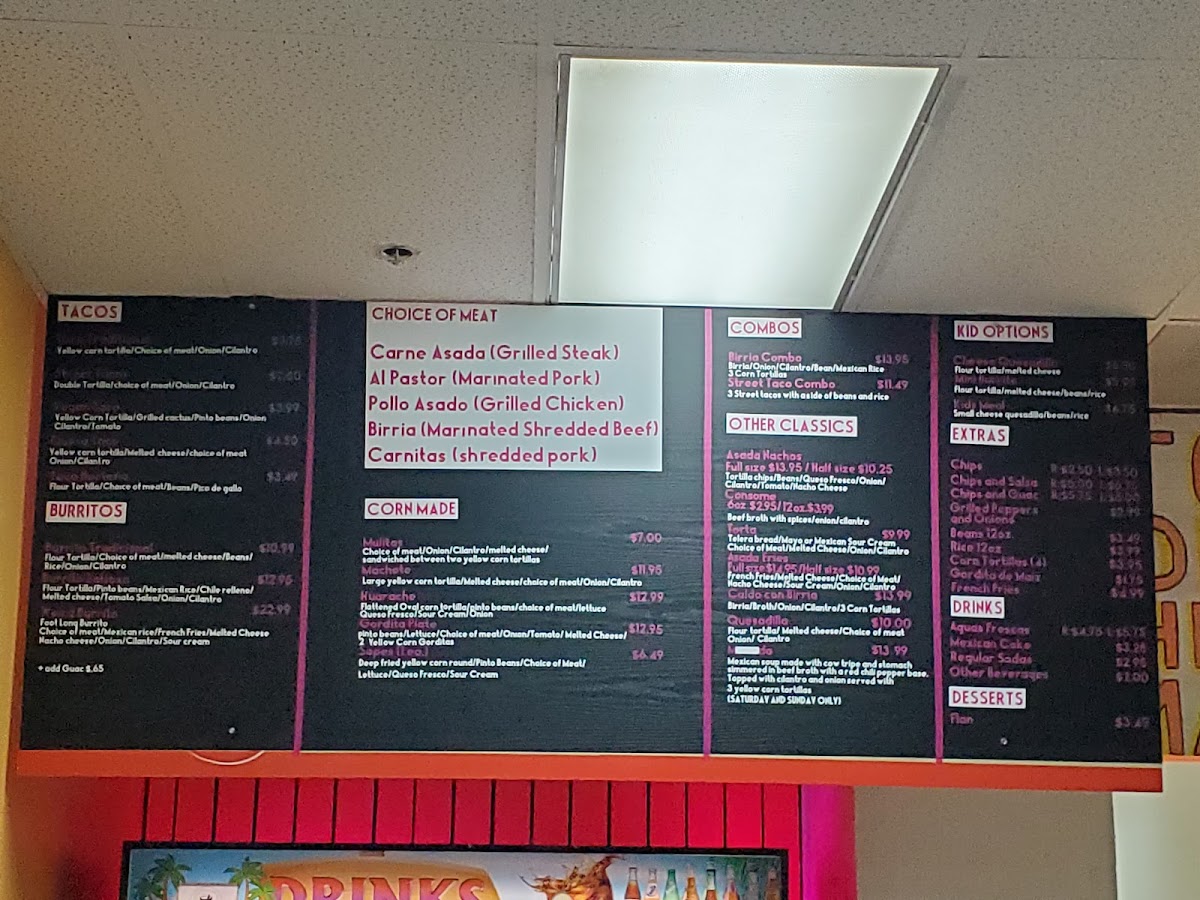 TACOS
Yellow corn tortilla/Choice of meat/Onion/Cilantro
Double Tortilla/choice of meat/Onion/Cilantro
$3.99
Yellow Corn Tortilla/Grilled cactus/Pinto beans/Onion
Cilantro/Tomato
$4.50
Yellow corn tortilla/Melted cheese/choice of meat
Onion/Cilantro
$3.49
Flour Tortilla/Choice of meat/Beans/Pico de gallo
BURRITOS
$10.99
Flour Tortilla/Choice of meat/melted cheese/Beans/
Rice/Onion/Cilantro
$12.95
Flour Tortilla/Pinto beans/Mexican Rice/Chile relleno/
Melted cheese/Tomato Salsa/Onion/Cilantro
$22.99
Foot Long Burrito
Choice of meat/Mexican rice/French Fries/Melted Cheese
Nacho cheese/Onion/Cilantro/Sour cream
+ add Guac $.65
CHOICE OF MEAT
Carne Asada (Grilled Steak)
Al Pastor (Marinated Pork)
Pollo Asado (Grilled Chicken)
Birria (Marinated Shredded Beef)
Carnitas (shredded pork)
CORN MADE
Mulitas $7.00
Choice of meat/Onion/Cilantro/melted cheese/
sandwiched between two yellow corn tortillas
Machete $11.95
Large yellow corn tortilla/Melted cheese/choice of meat/Onion/Cilantro
Huarache $12.99
Flattened Oval corn tortilla/pinto beans/choice of meat/lettuce
Queso Fresco/Sour Cream/Onion
Gordita Plate $12.95
pinto beans/Lettuce/Choice of meat/Onion/Tomato/ Melted Cheese/
2 Yellow Corn Gorditas
Sopes (1 ea.) $6.49
Deep fried yellow corn round/Pinto Beans/Choice of Meat/
Lettuce/Queso Fresco/Sour Cream
COMBOS
Birria Combo $13.95
Birria/Onion/Cilantro/Bean/Mexican Rice
3 Corn Tortillas
Street Taco Combo $11.49
3 Street tacos with aside of beans and rice
OTHER CLASSICS
Asada Nachos
Full size $13.95 / Half size $10.25
Tortilla chips/Beans/Queso Fresco/Onion/
Cilantro/Tomato/Nacho Cheese
Consome
6oz $2.95/12oz.$3.99
Beef broth with spices/onion/cilantro
Torta $9.99
Telera bread/Mayo or Mexican Sour Cream
Choice of Meat/Melted Cheese/Onion/Cilantro
Asada Fries
Full size$14.95 /Half size $10.99
French Fries/Melted Cheese/Choice of Meat/
Nacho Cheese/Sour Cream/Onion/Cilantro
Caldo con Birria $13.99
Birria/Broth/Onion/Cilantro/3 Corn Tortillas
Quesadilla $10.00
Flour tortilla/ Melted cheese/Choice of meat
Onion/ Cilantro
$13.99
Mexican soup made with cow tripe and stomach
simmered in beef broth with a red chili pepper base.
Topped with cilantro and onion served with
3 yellow corn tortillas
(SATURDAY AND SUNDAY ONLY)
KID OPTIONS
Cheese Quesadilla
Flour tortilla/melted cheese
Flour tortilla/melted cheese/beans/rice
Kids Meal $6.75
Small cheese quesadilla/beans/rice
EXTRAS
Chips
Chips and Salsa
Chips and Guac
Grilled Peppers
and Onions
Beans 12oz. $3.49
Rice 12oz $3.99
Corn Tortillas (4) $3.95
Gordita de Maiz $1.75
French Fries $4.99
DRINKS
Aguas Frescas R:$4.75 L:$5.75
Mexican Coke $3.28
Regular Sodas $2.95
Other Beverages $2.00
DESSERTS
Flan $3.49
DRINKS